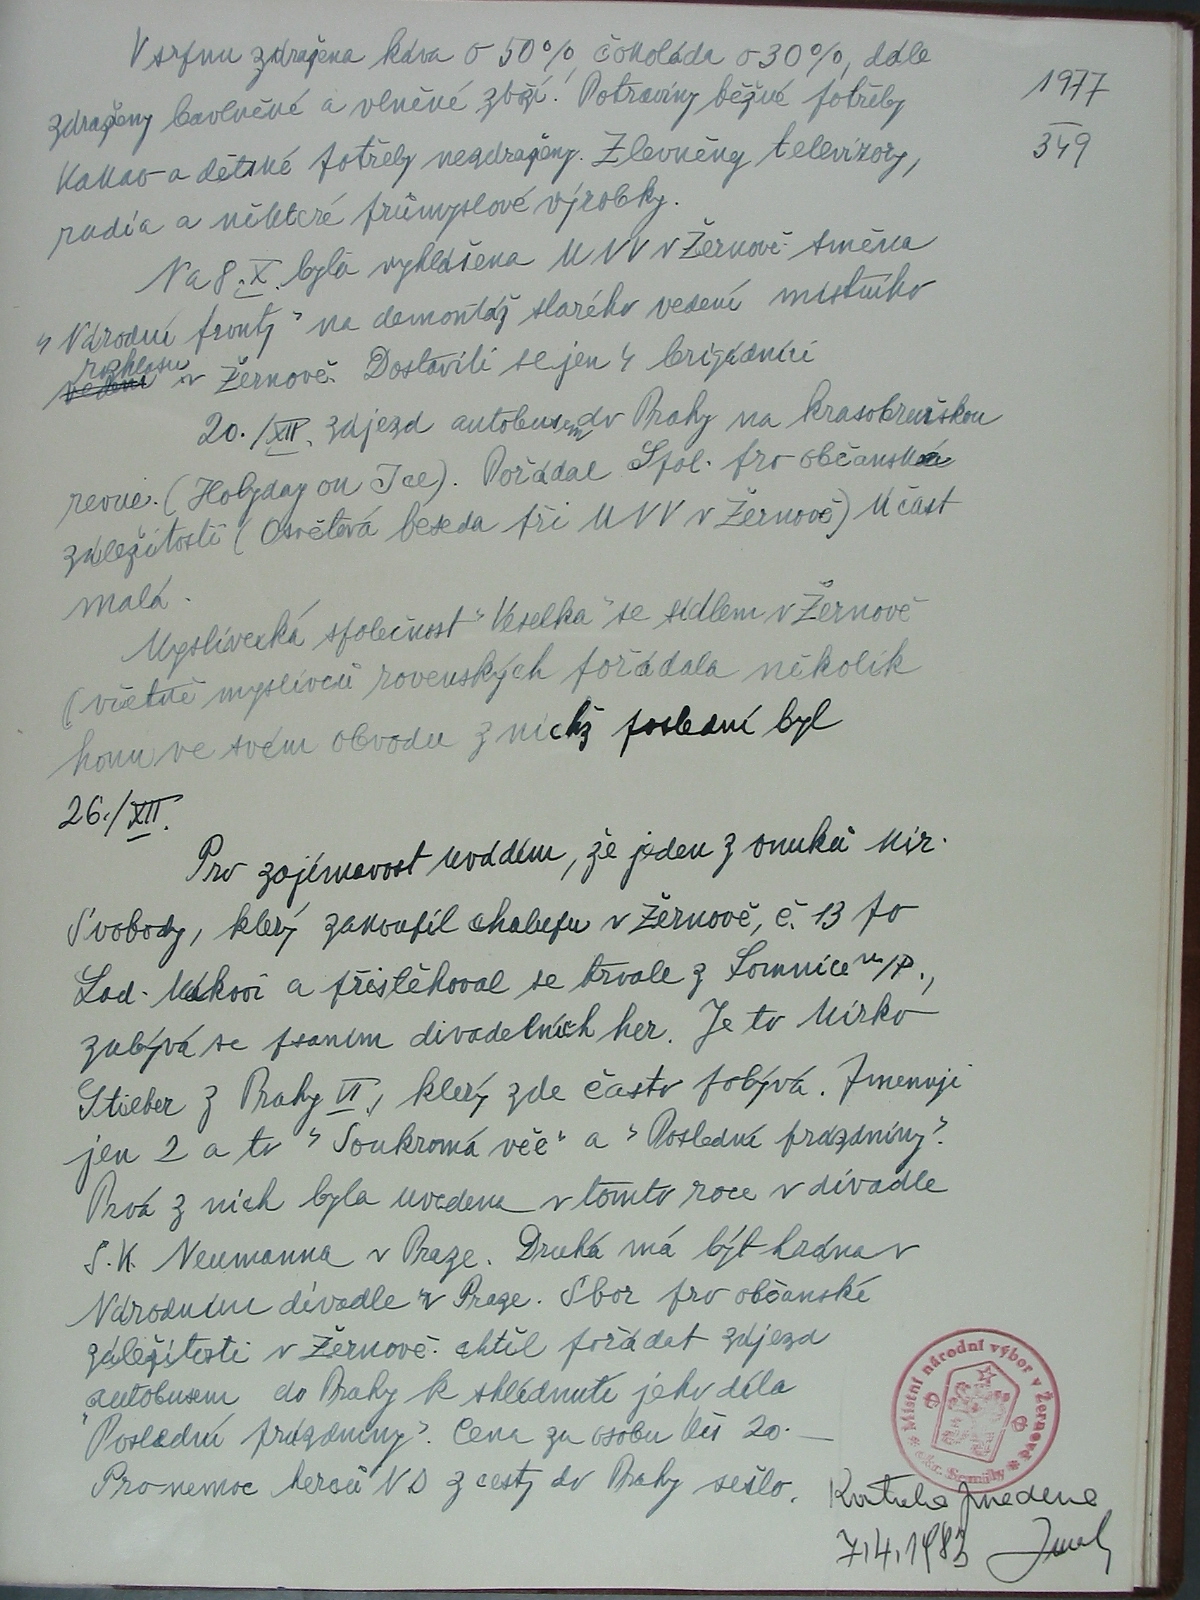 V srpnu zdražena káva o 50%, čokoláda o 30%, dále
1977
349
zdraženy bavlněné a vlněné zboží. Potraviny běžné potřeby
Kakao a dětské potřeby nezdraženy. Zlevněny televizory,
radia a některé průmyslové výrobky.
Na 8. X. byla vyhlášena MNV v Žernově směna
"Národní fronty" na demontáž starého vedení místního
rozhlasu
vedení v Žernově. Dostavili se jen 4 brigádníci
20./XII. zájezd autobusem do Prahy na krasobruslskou
revue. (Holyday on Ice). Pořádal Spol. pro občanské
záležitosti (Osvětová beseda při MNV v Žernově) Účast
malá.
Myslivecká společnost "Veselka" se sídlem v Žernově
(včetně myslivců rovenských pořádala několik
honu ve svém obvodu z nichž poslední byl
26./XII.
Pro zajímavost uvádím, že jeden z vnuků Mir.
Svobody, který zakoupil chalupu v Žernově, č. 13 po
Lad. a přistěhoval se trvale z Lomnice n/P.,
zabývá se psaním divadelních her. Je to Mirko
Stieber z Prahy VI, který zde často pobývá. Jmenuji
jen 2 a to "Soukromá věc" a "Poslední prázdniny".
Prvá z nich byla uvedena v tomto roce v divadle
S. K. Neumanna v Praze. Druhá má být hrána v
Národním divadle v Praze. Sbor pro občanské
záležitosti v Žernově chtěl pořádat zájezd
autobusem do Prahy k shlédnutí jeho díla
"Poslední prázdniny". Cena za osobu Kčs 20.—
Pro nemoc herců ND z cesty do Prahy sešlo.
Místní národní výbor v Žernově
okr. Semily
7.4.1983